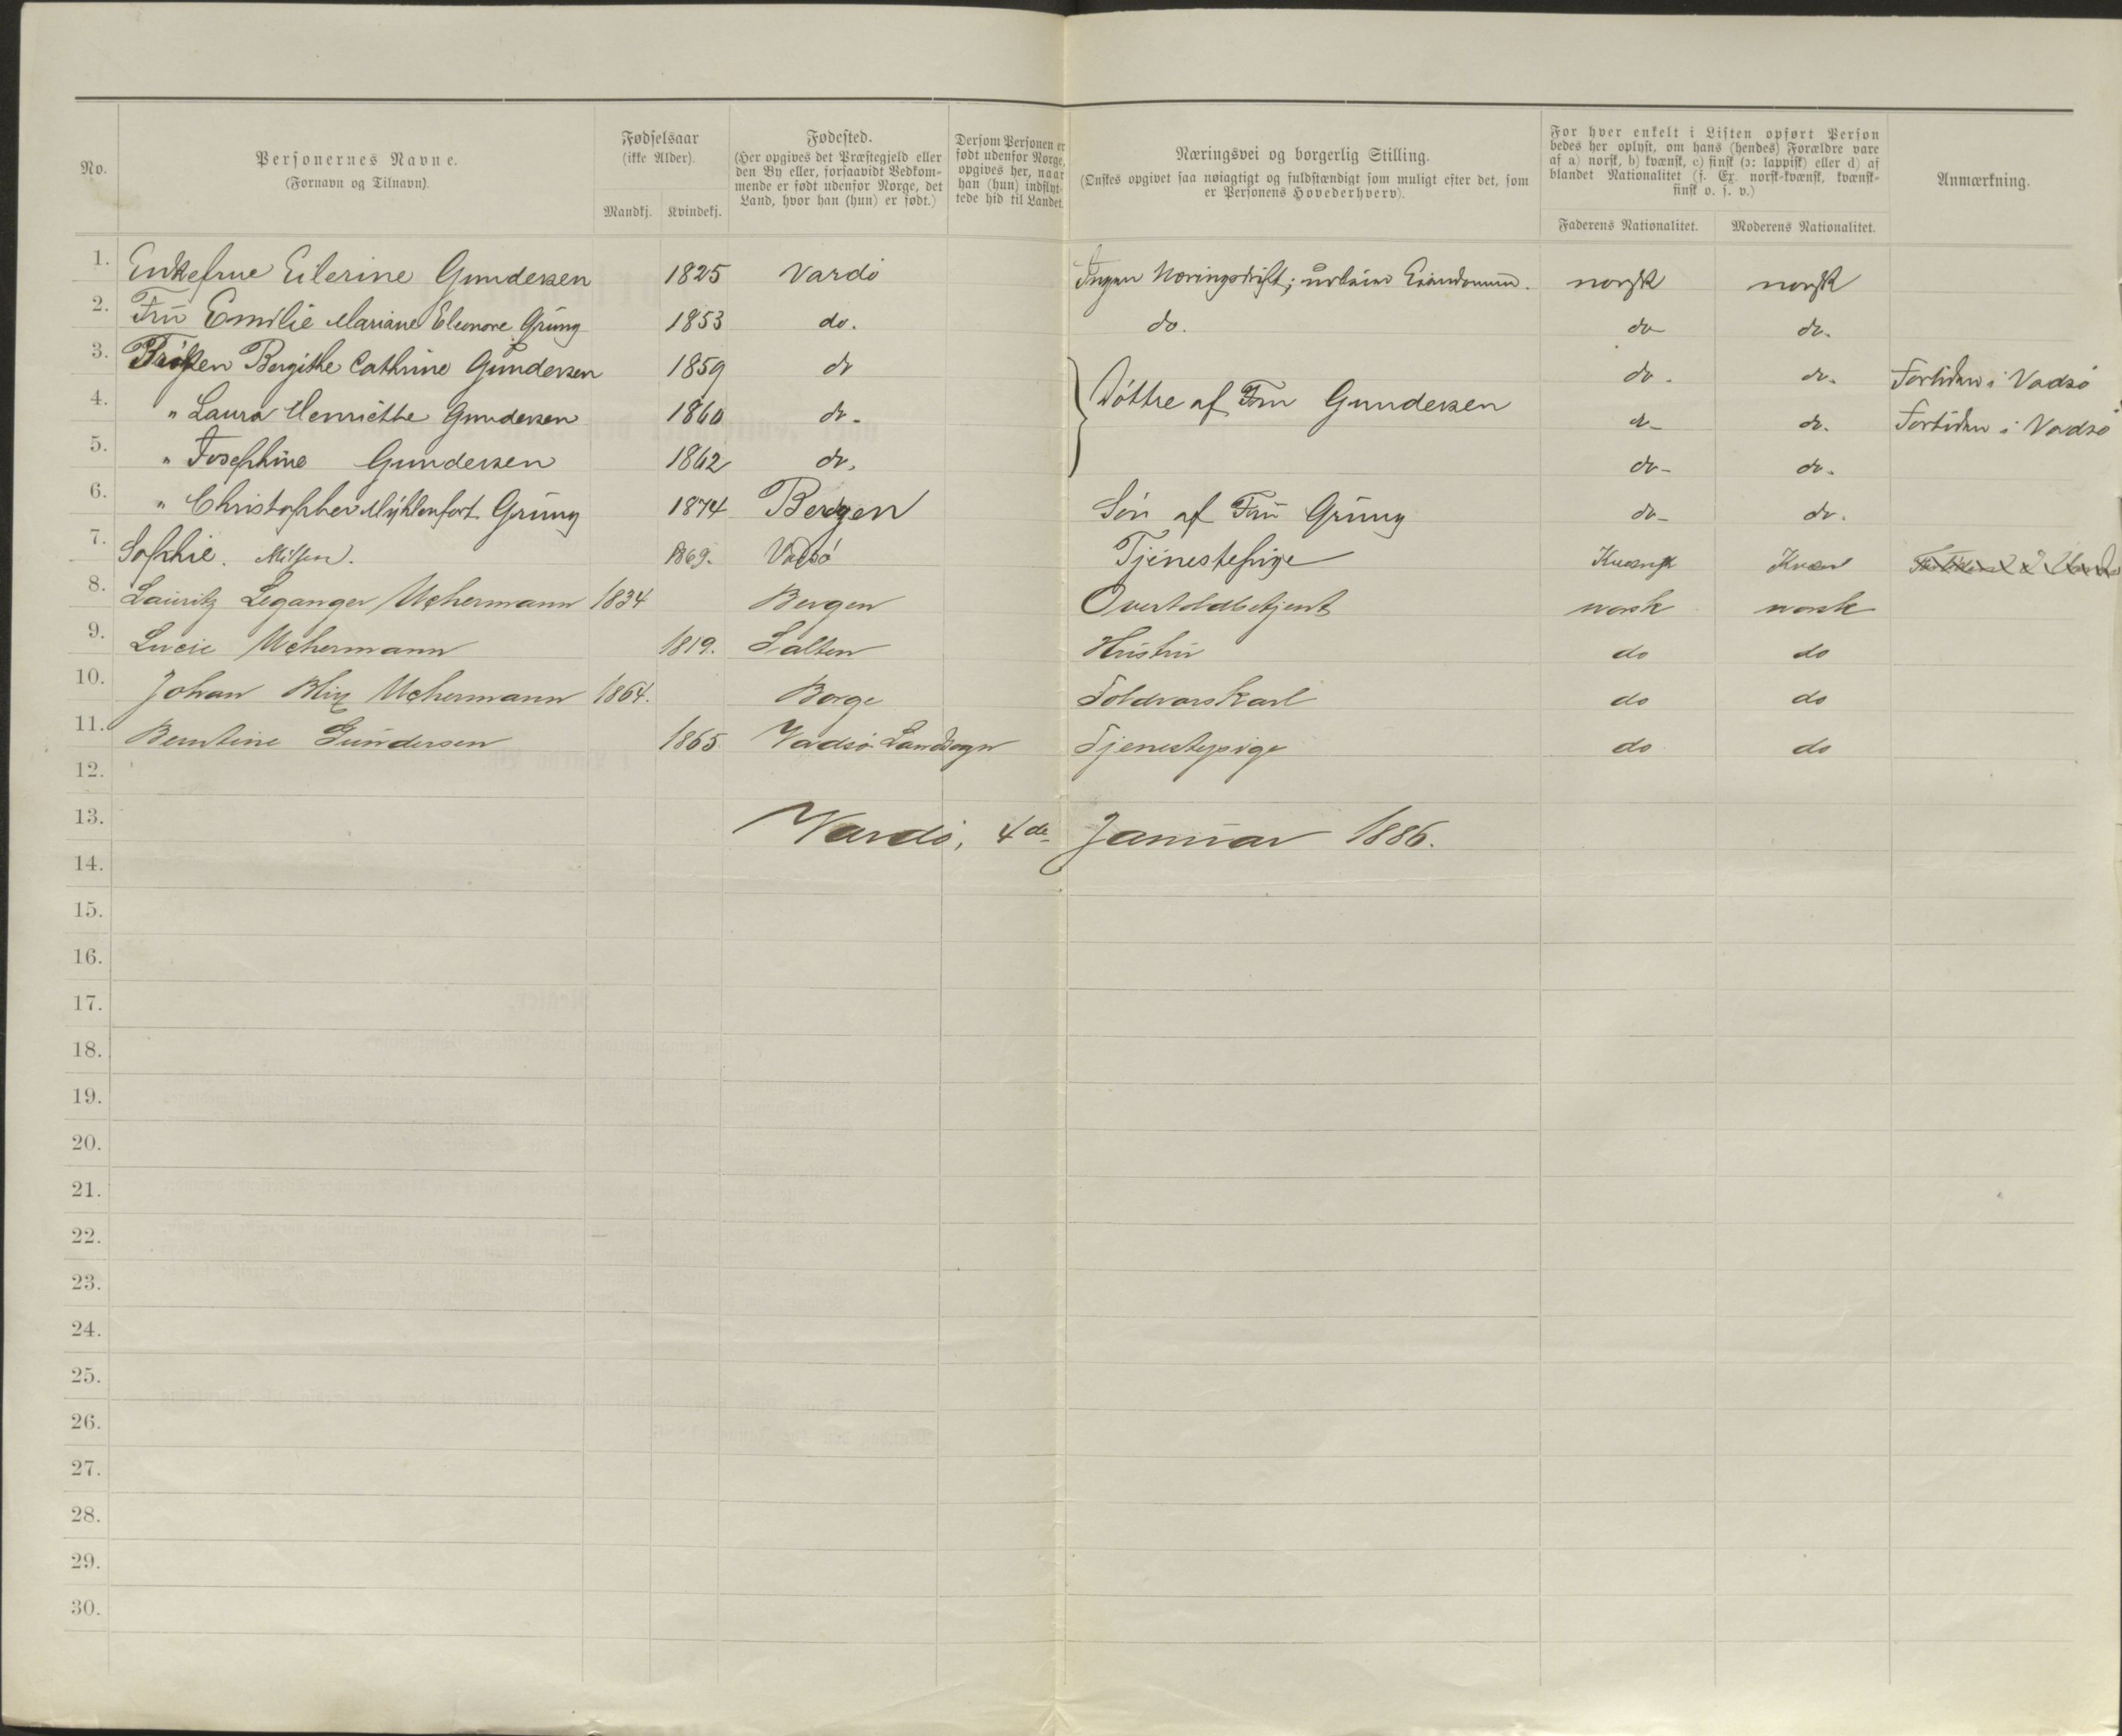 No.
Personernes Navne.
(Fornavn og Tilnavn).
Fødselsaar
(ikke Alder).
Mandkj. Kvindekj.
Fødested.
(Her opgives det Præstegjeld eller
den By eller, forsaavidt Vedkom-
mende er født udenfor Norge, det
Land, hvor han (hun) er født.)
Dersom Personen er
født udenfor Norge,
opgives her, naar
han (hun) indflyt-
tede hid til Landet.
Næringsvei og borgerlig Stilling.
(Ønskes opgivet saa nøiagtigt og fuldstændigt som muligt efter det, som
er Personens Hovederhverv).
For hver enkelt i Listen opført Person
bedes her oplyst, om hans (hendes) Forældre vare
af a) norsk, b) kvænsk, c) finsk (ɔ: lappisk) eller d) af
blandet Nationalitet (f. Ex. norsk-kvænsk, kvænsk-
finsk o. s. v.)
Faderens Nationalitet. Moderens Nationalitet.
Anmærkning.
1. Enkefrue Eilerine Gundersen 1825 Vardö Ingen Næringsdrift; norsk norsk
2. Frü Emilie Mariane Eleonore Grüng 1853 do. do. do do.
3. Fröken Bergithe Cathrine Gundersen 1859 do do. do. Fortiden i Vadsö
4. " Laura Henriethe Gundersen 1860 do. Döttre af Fru Gundersen do do. Fortiden i Vadsö
5. " Josephine Gundersen 1862 do. do do.
6. " Christopher Mÿhlenfort Grüng 1874 Bergen Sön af Frü Grüng do do.
7. Sophie. 1869. Vadsö Tjenestepige Kvænsk Kvæn
8. Lauritz Leganger Uchermann 1834 Bergen Overtoldbetjent norsk norsk
9. Lucie Uchermann 1819. Salten Hustru do do
10. Johan Blix Uchermann 1864. Borge Toldvorskarl do do
11. Berntine Gundersen 1865 Vadsö Landsogn Tjenestepige do do
12.
13. Vardö, 4de Januar 1886.
14.
15.
16.
17.
18.
19.
20.
21.
22.
23.
24.
25.
26.
27.
28.
29.
30.